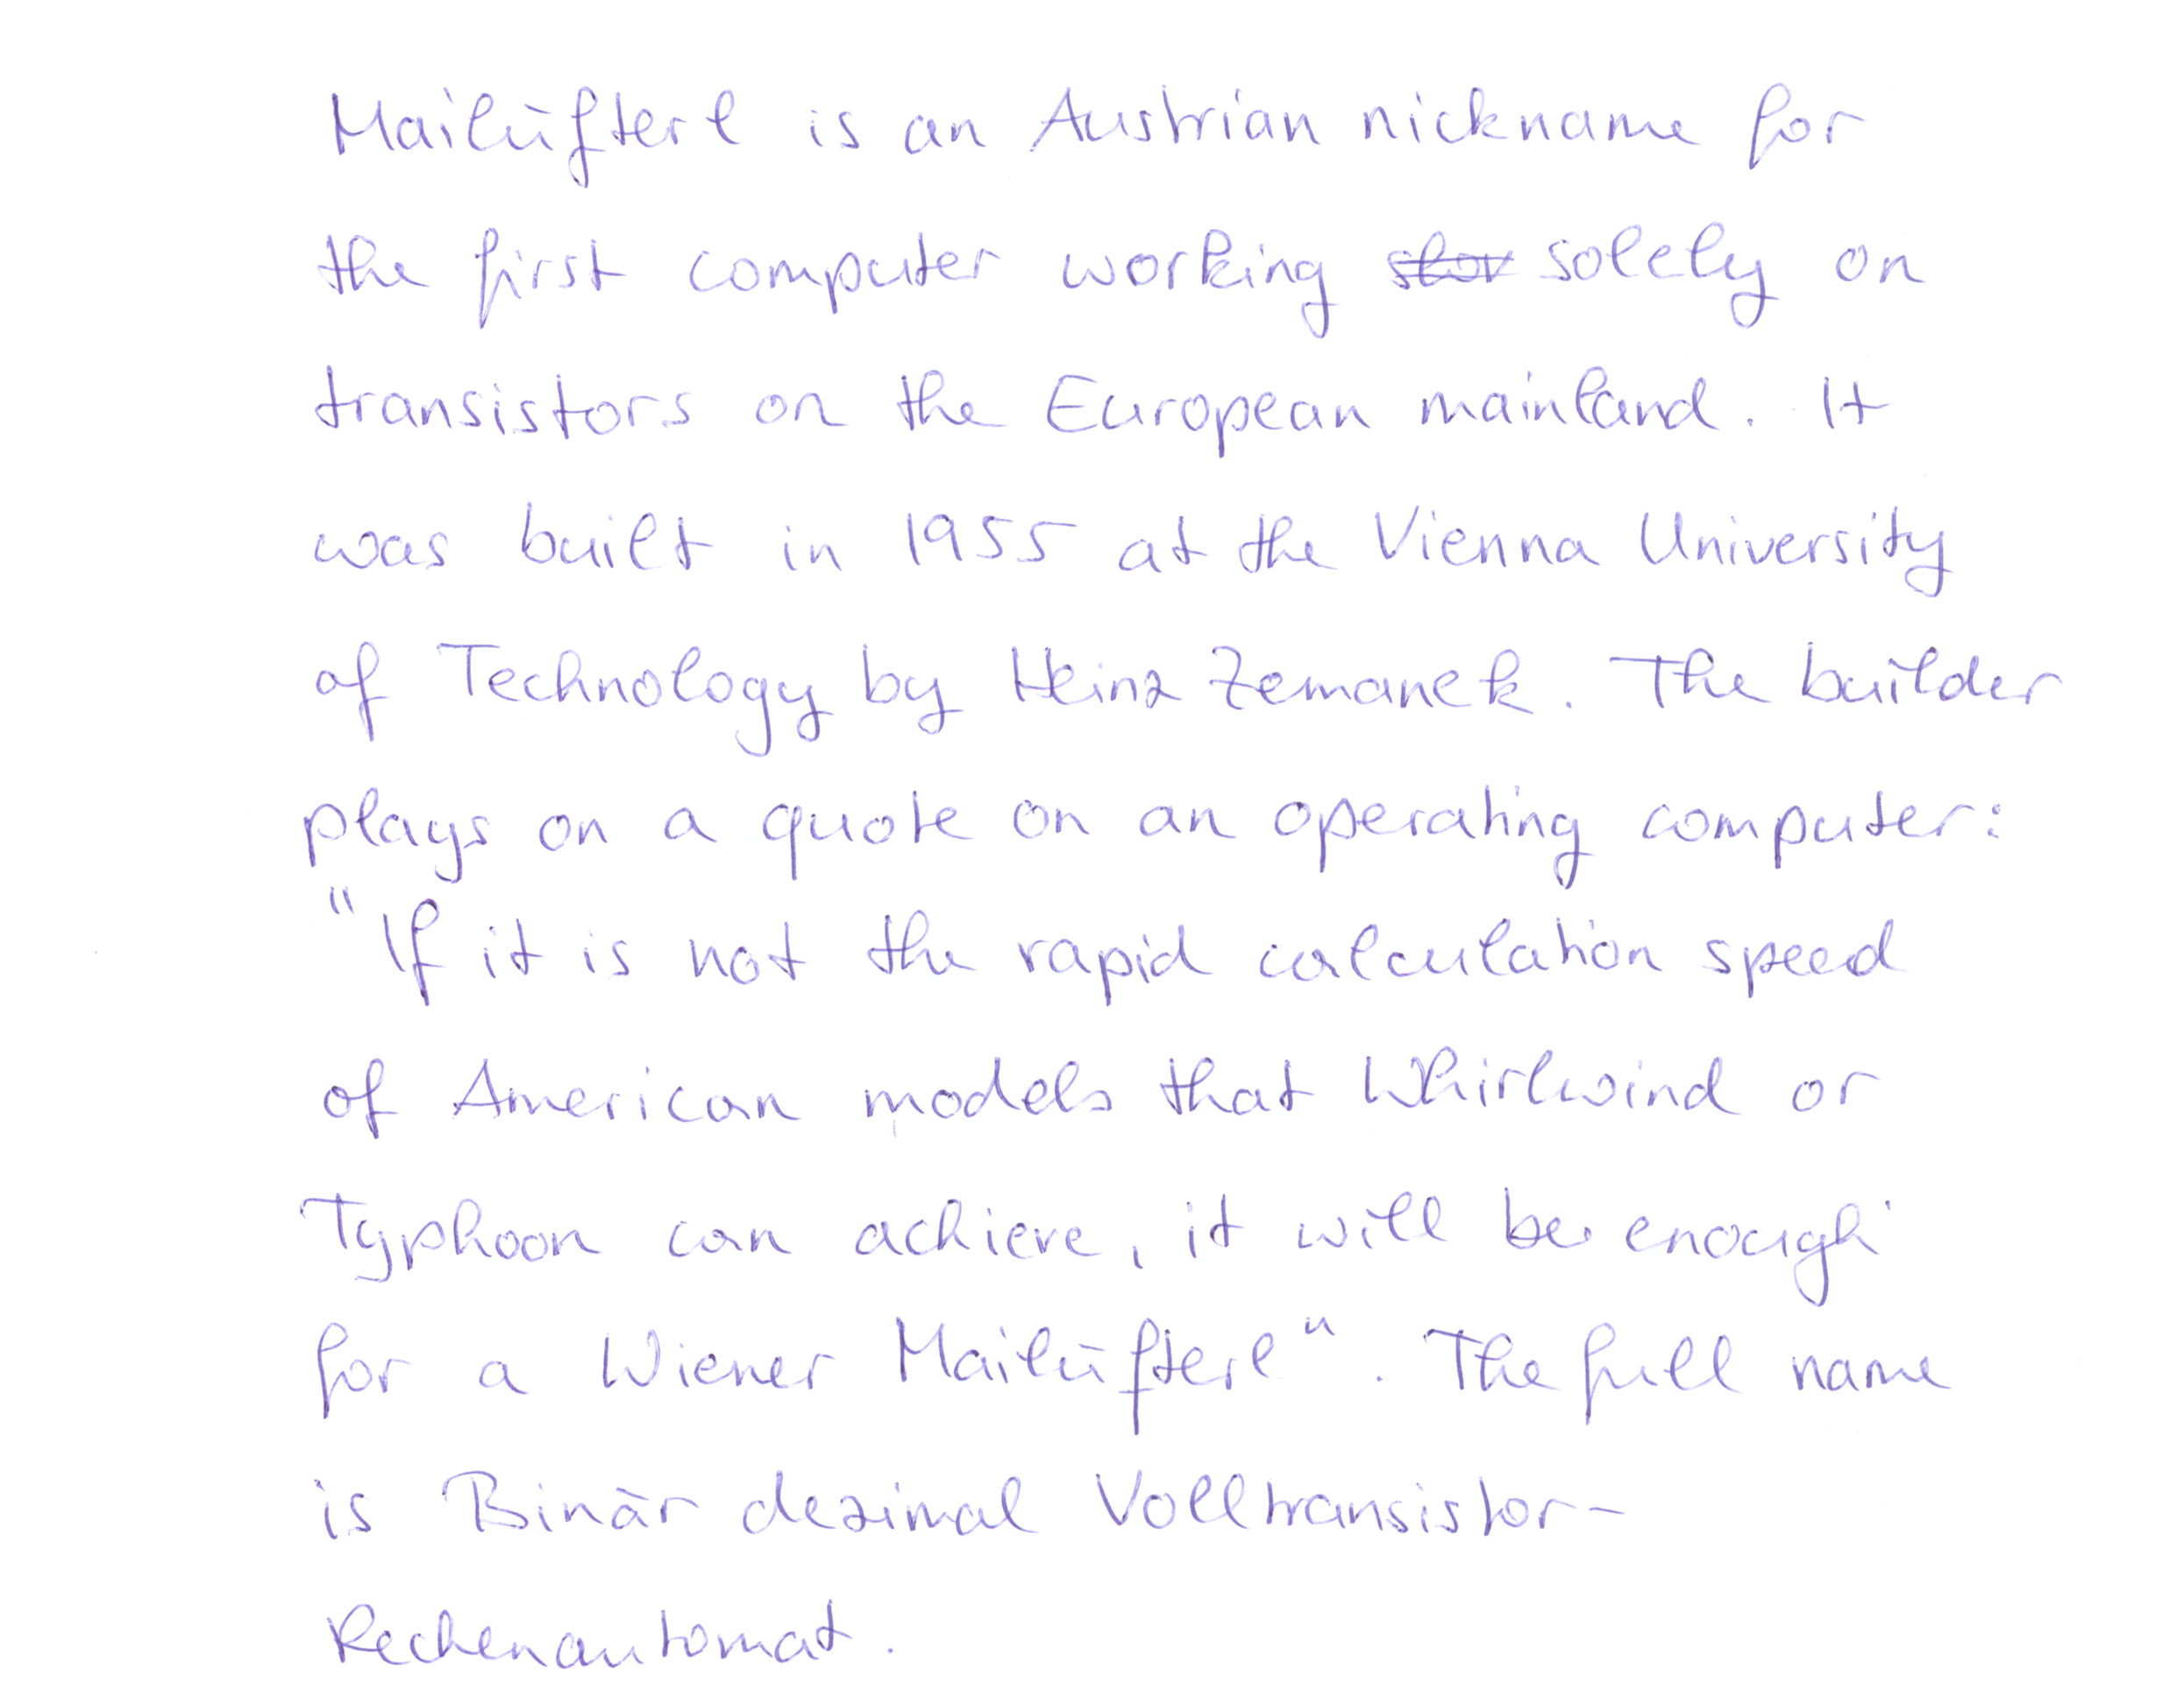 Mailüfterl is an Austrian nickname for
the first computer working solely on
transistors on the European mainland. It
was built in 1955 at the Vienna University
of Technology by Heinz Zemanek. The builder
plays on a quote on an operating computer:
"If it is not the rapid calculation speed
of American models that Whirlwind or
Typhoon can achieve, it will be enough
for a Wiener Mailüfterl". The full name
is Binär dezimal Volltransistor-
Rechenautomat.